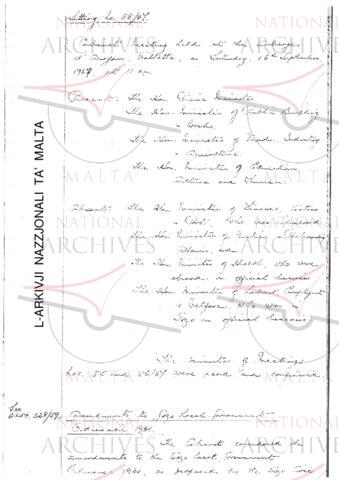 Sitting No 56/67.
Cabinet Meeting held at the Auberge
d'Aragon, Valletta, on Saturday, 16th September
1967 at 11 am.
Present: The Hon. Prime Minister
The Hon. Minister of Public Building
& Works,
The Hon. Minister of Trade, Industry
& Agriculture.
The Hon. Minister of Education,
Culture and Tourism.
Absent: The Hon. Minister of Finance, Customs
& Port, who was indisposed
The Hon. Minister of Justice & Parliamentary
Affairs, and
The Hon Minister of Health, who were
abroad on official business
The Hon. Minister of Labour Employment
& Welfare, who was in
Gozo on official business
The Minutes of Meetings
Nos. 55 and 56/67 were read and confirmed
See
528/59.
Amendments to Gozo Local Government
Ordinance 1961.
The Cabinet considered the
amendments to the Gozo Local Government
Ordinance 1961, as proposed by the Gozo Civic
L-ARKIVJI NAZZJONALI TA' MALTA
NATIONAL
ARCHIVES
MALTA